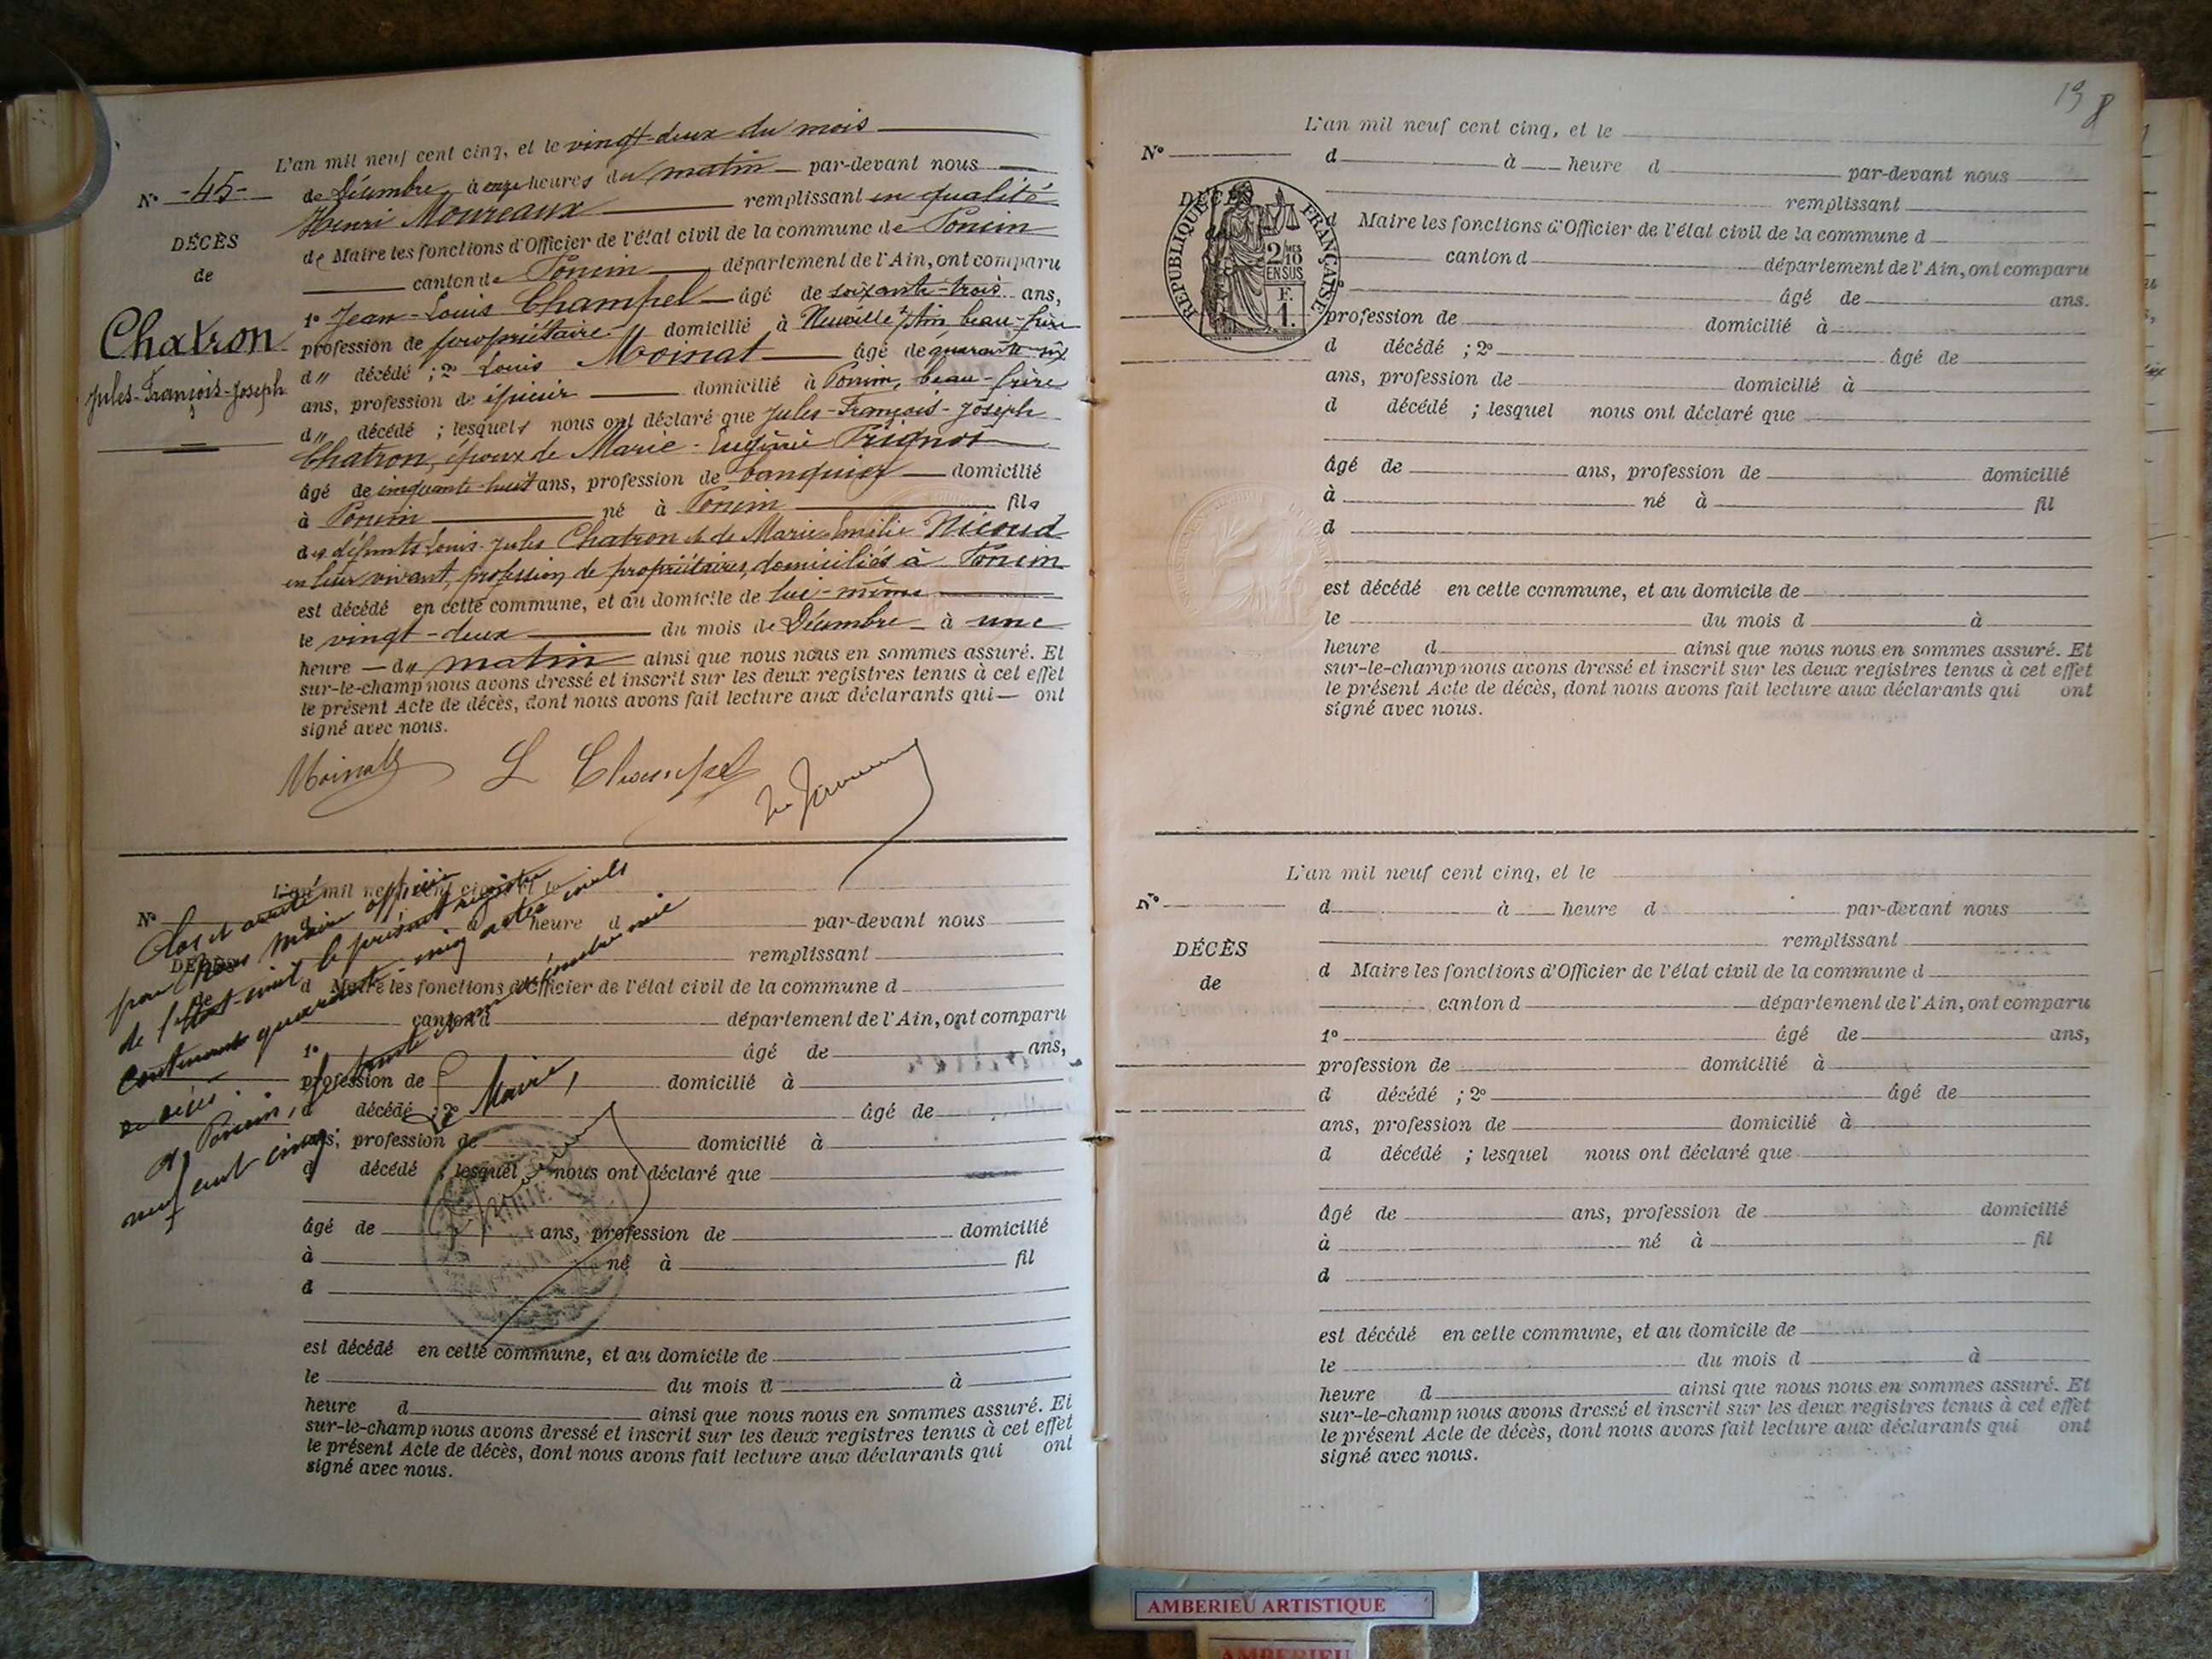 L'an mil neuf cent cinq, et le vingt-deux du mois
No -45- de Décembre à onze heures du matin par-devant nous
Henri Moureaux remplissant en qualité
DÉCÈS
de Maire les fonctions d'Officier de l'état civil de la commune de Poncin
de
canton de Poncin département de l'Ain, ont comparu
1o Jean-Louis Champel âgé de soixante-trois ans,
Chatron
profession de propriétaire domicilié à Neuville s/Ain beau-frère
Jules-François-Joseph
d" décédé ; 2o Louis Moinat âgé de quarante six
ans, profession de épicier domicilié à Poncin, beau-frère
d" décédé ; lesquels nous ont déclaré que Jules-François-Joseph
Chatron, époux de Marie-Eugénie Trignot
âgé de cinquante-huit ans, profession de banquier domicilié
à Poncin né à Poncin fils
des défunts Louis-Jules Chatron et de Marie Emélie Nicoud
en leur vivant, profession de propriétaires, domiciliés à Poncin
est décédé en cette commune, et au domicile de lui-même
le vingt-deux du mois de Décembre à une
heure du matin ainsi que nous nous en sommes assuré. Et
sur-le-champ nous avons dressé et inscrit sur les deux registres tenus à cet effet
le présent Acte de décès, dont nous avons fait lecture aux déclarants qui ont
signé avec nous.
Moinat L Champel
L'an mil neuf cent cinq, et le
No d à heure d par-devant nous
remplissant
DÉCÈS
de
d Maire les fonctions d'Officier de l'état civil de la commune d
canton d département de l'Ain, ont comparu
1o âgé de ans,
profession de domicilié à
d décédé ; 2o âgé de
ans, profession de domicilié à
d décédé ; lesquel nous ont déclaré que
âgé de ans, profession de domicilié
à né à fil
d
est décédé en cette commune, et au domicile de
le du mois d à
heure d ainsi que nous nous en sommes assuré. Et
sur-le-champ nous avons dressé et inscrit sur les deux registres tenus à cet effet
le présent Acte de décès, dont nous avons fait lecture aux déclarants qui ont
signé avec nous.
Clos et arrêté
par Nous Maire officier
de l'état-civil le présent registre
contenant quarante-cinq actes
de décès.
A Poncin, le trente et un décembre mil
neuf cent cinq
Le Maire,
MAIRIE
19
8
L'an mil neuf cent cinq, et le
No d à heure d par-devant nous
DÉCÈS
remplissant
d Maire les fonctions d'Officier de l'état civil de la commune d
RÉPUBLIQUE FRANÇAISE
2/10 MES
EN SUS
F.
1.
canton d département de l'Ain, ont comparu
âgé de ans.
profession de domicilié à
d décédé ; 2o âgé de
ans, profession de domicilié à
d décédé ; lesquel nous ont déclaré que
âgé de ans, profession de domicilié
à né à fil
d
est décédé en cette commune, et au domicile de
le du mois d à
heure d ainsi que nous nous en sommes assuré. Et
sur-le-champ nous avons dressé et inscrit sur les deux registres tenus à cet effet
le présent Acte de décès, dont nous avons fait lecture aux déclarants qui ont
signé avec nous.
L'an mil neuf cent cinq, et le
No d à heure d par-devant nous
remplissant
DÉCÈS
d Maire les fonctions d'Officier de l'état civil de la commune d
de
canton d département de l'Ain, ont comparu
1o âgé de ans,
profession de domicilié à
d décédé ; 2o âgé de
ans, profession de domicilié à
d décédé ; lesquel nous ont déclaré que
âgé de ans, profession de domicilié
à né à fil
d
est décédé en cette commune, et au domicile de
le du mois d à
heure d ainsi que nous nous en sommes assuré. Et
sur-le-champ nous avons dressé et inscrit sur les deux registres tenus à cet effet
le présent Acte de décès, dont nous avons fait lecture aux déclarants qui ont
signé avec nous.
AMBERIEU ARTISTIQUE
AMBERIEU